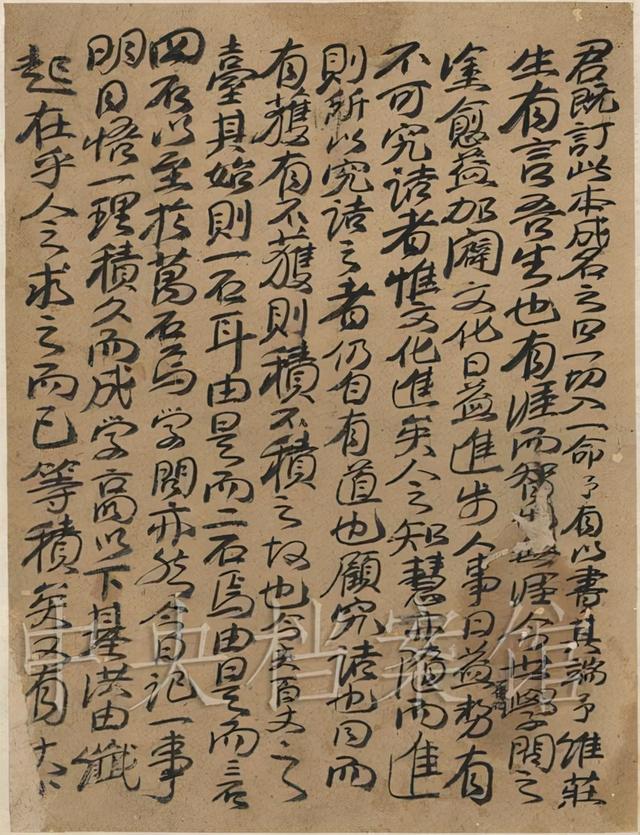 君既訂此本成名之曰一切入一命予有以書其端予維莊
生有言吾生也有涯而智也無涯今世學問之
塗愈益加闢文化日益進步人事日益勢有
不可究詰者惟文化進矣人之知慧亦隨而進
則所以究詰之者仍自有道也顧究詰也同而
有獲有不獲則積不積之故也今夫百丈之
臺其始則一石耳由是而二石焉由是而三石
四石以至於萬石焉学問亦然今日記一事
明日悟一理積久而成学高以下基洪由纖
起在乎人之求之而已等積矣又有大小
中央档案馆